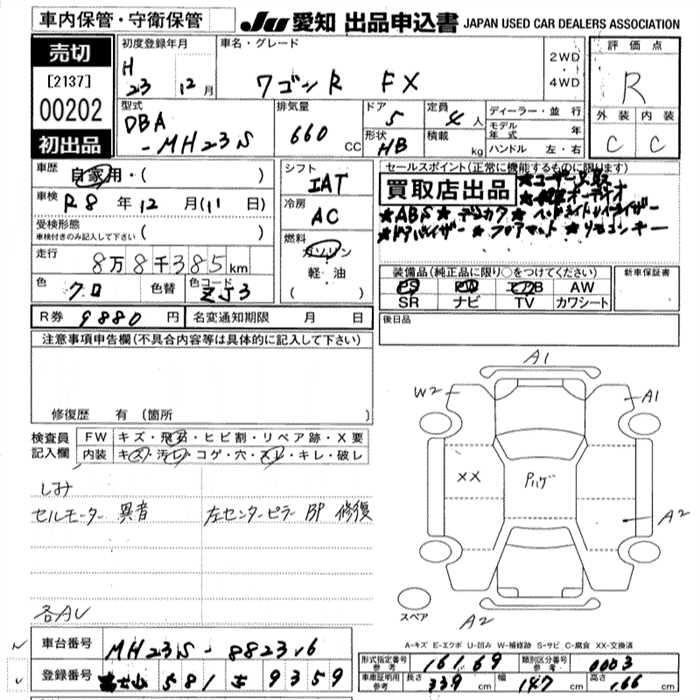 車内保管・守衛保管
JU 愛知 出品申込書 JAPAN USED CAR DEALERS ASSOCIATION
売切
[2137]
00202
初出品
初度登録年月
H 23年 12月
車名・グレード
ワゴンR FX
2WD
・
4WD
評価点
R
外装 内装
C C
型式
DBA
-MH23S
排気量
660 CC
ドア
5
形状
HB
定員
4人
積載
kg
ディーラー・並行
モデル年式 年
ハンドル 左・右
車歴
自家用・( )
車検
R8年12月(11日)
受検形態
車検付きのみ記入して下さい ( )
走行
8万8千385km
色
クロ
色替
色コード
ZJ3
シフト
IAT
冷房
AC
燃料
ガソリン
軽・油
( )
セールスポイント(正常に機能するものに限ります)
買取店出品
★ABS
★ドアバイザー ★フロアマット ★リモコンキー
装備品(純正品に限り○をつけてください)
PS PW エアB AW
SR ナビ TV カワシート
新車保証書
後日品
R券 9880円 名変通知期限 月 日
注意事項申告欄(不具合内容等は具体的に記入して下さい)
修復歴 有(箇所 )
検査員記入欄
FW キズ・飛石・ヒビ割・リペア跡・X要
内装 キズ・汚レ・コゲ・穴・スレ・キレ・破レ
しみ
セルモーター 異音 左センターピラー BP 修復
各AU
A1
W2
A1
XX
Pハゲ
A2
A2
スペア
A-キズ E-エクボ U-凹み W-補修跡 S-サビ C-腐食 XX-交換済
車台番号 MH23S-882316
登録番号 581 9359
形式指定番号 参考 16169
類別区分番号 参考 0003
車庫証明用 参考 長さ 339cm 幅 147cm 高さ 166cm